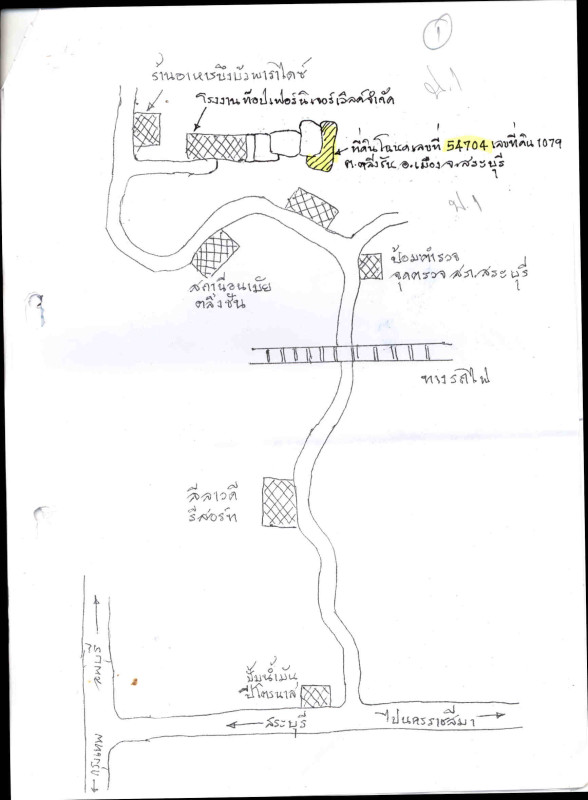 1
ป.1
ร้านอาหารบึงบัวพาราไดซ์
โรงงานท๊อปเฟอร์นิเจอร์เวิลด์จำกัด
ที่ดินโฉนดเลขที่ 54704 เลขที่ดิน 1079
ต.ตลิ่งชัน อ.เมือง จ.สระบุรี
ป.1
ป้อมตำรวจ
จุดตรวจ สภ.สระบุรี
สถานีอนามัย
ตลิ่งชัน
ทางรถไฟ
ลีลาวดี
รีสอร์ท
ปั้มน้ำมัน
ปิโตรนาส
ลพบุรี
สระบุรี
ไปนครราชสีมา
กรุงเทพ